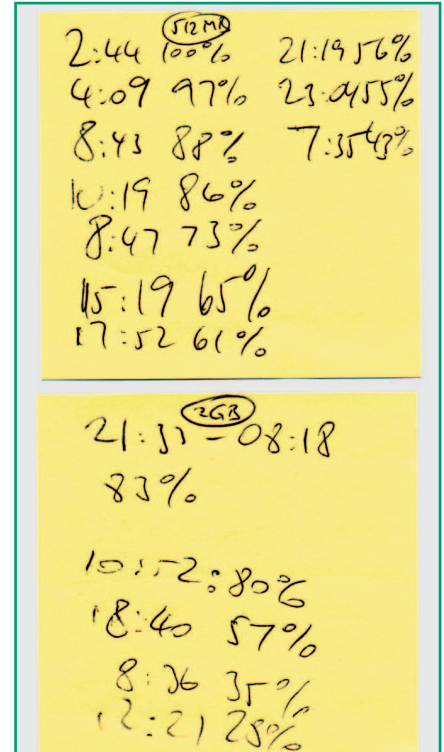 512 MB
2:44 100%
4:09 97%
8:43 88%
10:19 86%
8:47 73%
15:19 65%
17:52 61%
21:19 56%
23:04 55%
7:35 43%
2GB
21:33 - 08:18
83%
10:52: 80%
18:40 57%
8:36 35%
12:21 28%